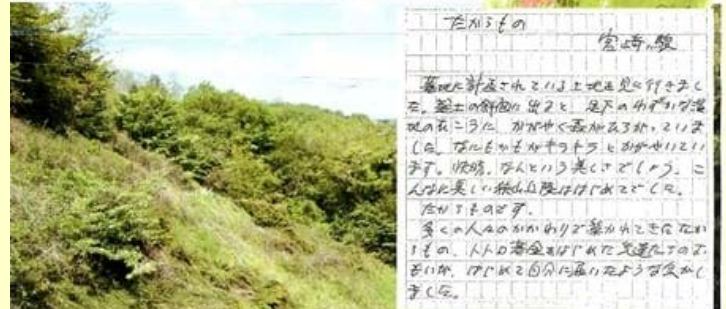 たからもの
宮崎 駿
墓地に計画されている土地を見に行きまし
た。盛土の斜面に出ると、足下のわずかな湿
地のむこうに、かがやく森がひろがっていま
した。なにもかもがキラキラとかがやいてい
ます。快晴。なんという美しさでしょう。こ
んなに美しい狭山丘陵ははじめてでした。
たからものです。
多くの人々のかかわりで築かれてきたたか
らもの、トトロ基金をはじめた友達たちのお
もいが、はじめて自分に届いたような気がし
ました。